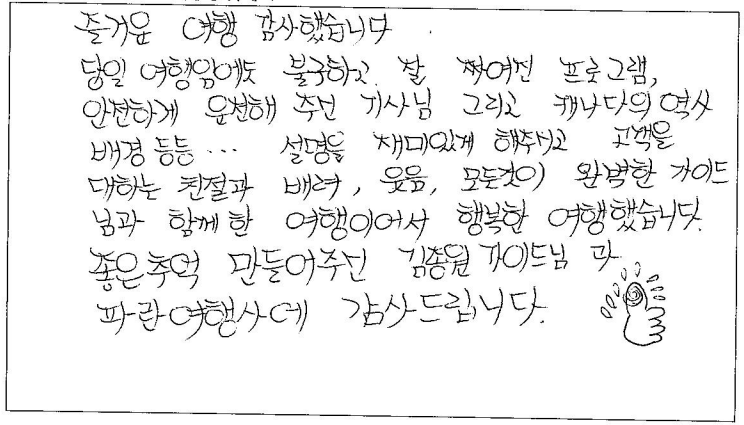 즐거운 여행 감사했습니다.
당일 여행임에도 불구하고 잘 짜여진 프로그램,
안전하게 운전해 주신 기사님 그리고 캐나다의 역사
배경 등등 ... 설명을 재미있게 해주시고 고객을
대하는 친절과 배려, 웃음, 모든것이 완벽한 가이드
님과 함께 한 여행이어서 행복한 여행했습니다.
좋은추억 만들어주신 김종원 가이드님 과
파란여행사에 감사드립니다.